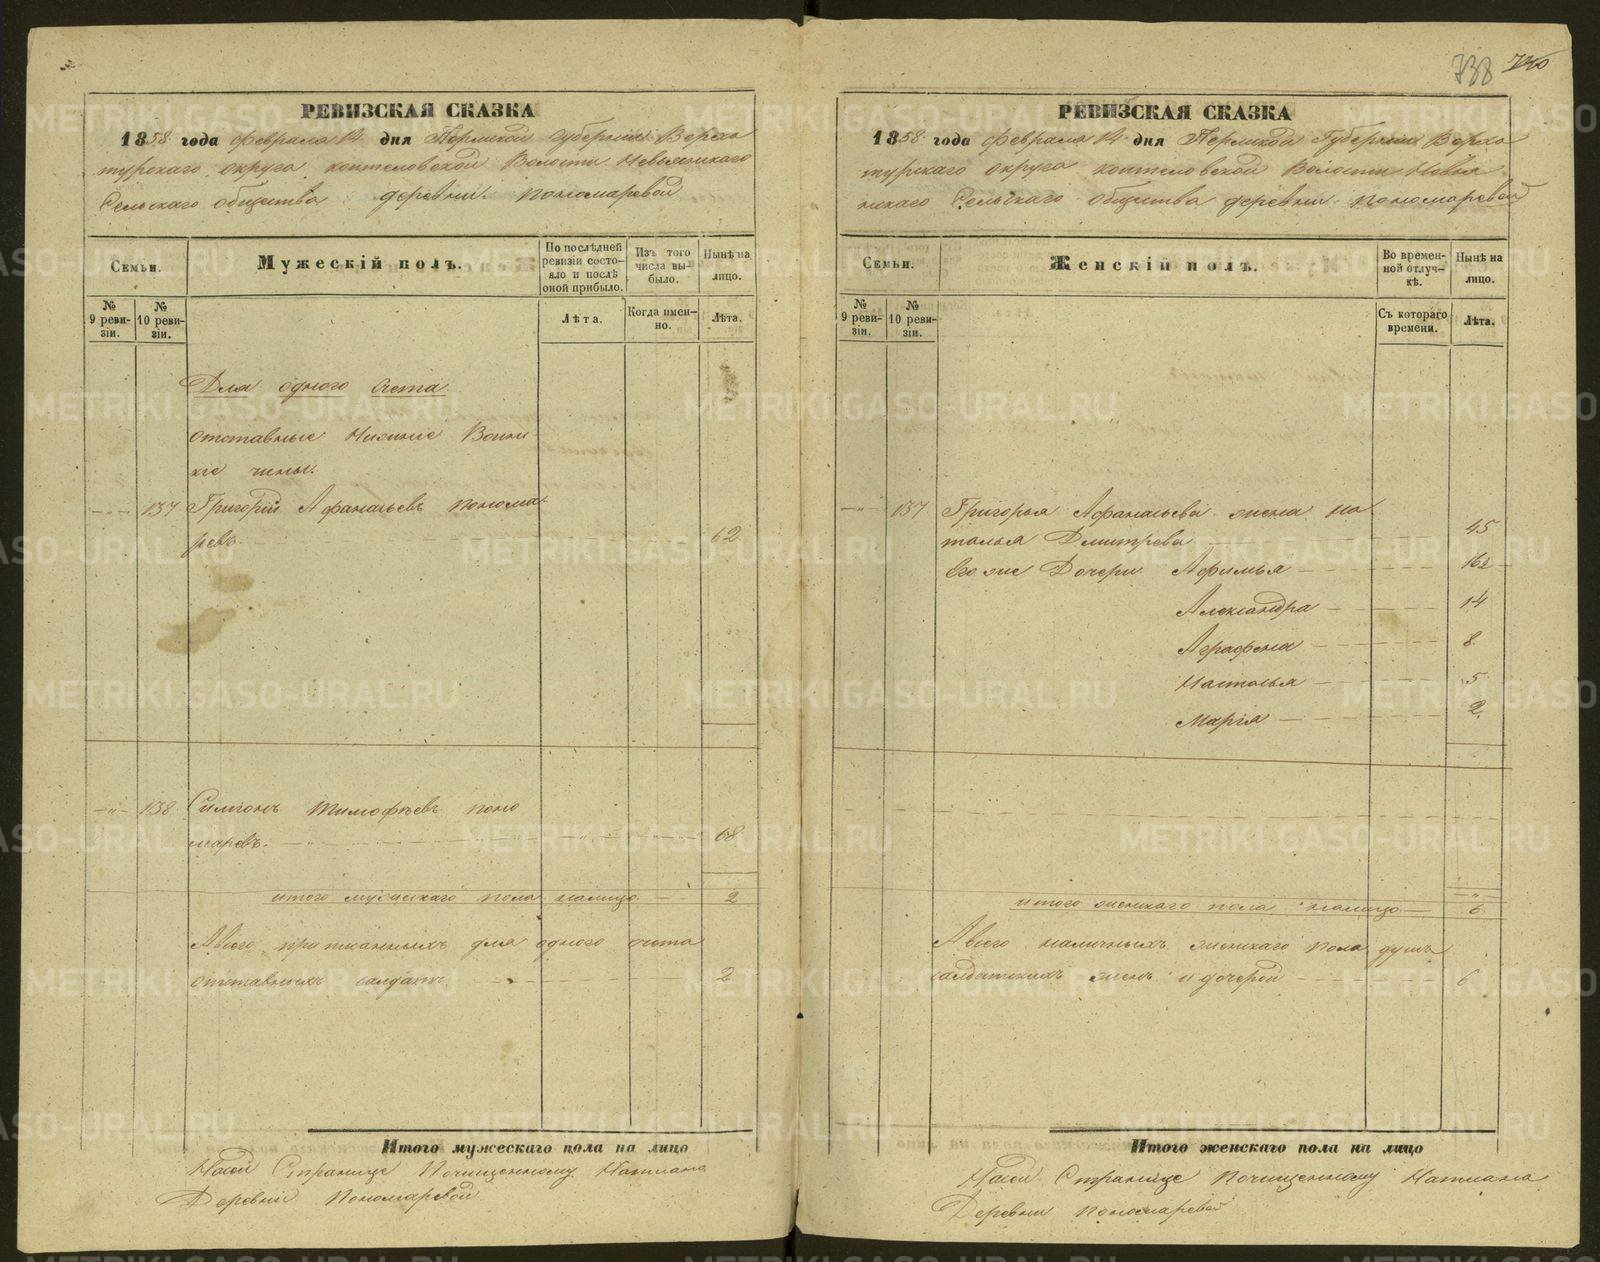 738 740
РЕВИЗСКАЯ СКАЗКА
1858 года февраля 14 дня Пермской губернии Верхо
турскаго округа коптеловской Волости Невьянскаго
Сельскаго общества деревни пономаревой
Семьи.
Мужескій полъ.
По послѣдней ревизіи состояло и послѣ оной прибыло.
Изъ того числа выбыло.
Нынѣ на лицо.
№ 9 ревизіи.
№ 10 ревизіи.
Лѣта.
Когда именно.
Лѣта.
Для одного счета
отставные Нижние Воинс
кіе чины.
137 Григорій Афанасьевъ понома
ревъ. 62
138 Симіонъ Тимофѣевъ поно
маревъ. 68
итого мужескаго пола налицо 2
Авсего прописанныхъ для одного счета
отставныхъ салдатъ 2
Итого мужескаго пола на лицо
Насей Странице Почищенному
Деревни Пономаревой
РЕВИЗСКАЯ СКАЗКА
1858 года февраля 14 дня Пермской Губерніи Верхо
турскаго округа коптеловской Волости Невья
нскаго Сельскаго общества деревни пономаревой
Семьи.
Женскій полъ.
Во временной отлучкѣ.
Нынѣ на лицо.
№ 9 ревизіи.
№ 10 ревизіи.
Съ котораго времени.
Лѣта.
137 Григорья Афанасьева жена на
талья Дмитрева 45
Его же Дочери Афимья 16½
Александра 14
Аграфена 8
Настасья 5
Марія 2
итого женскаго пола налицо 6
Авсего наличныхъ женскаго пола душъ
салдатскихъ женъ и дочерей 6
Итого женскаго пола на лицо
Насей Странице Почищенному
Деревни пономаревой
METRIKI.GASO-URAL.RU